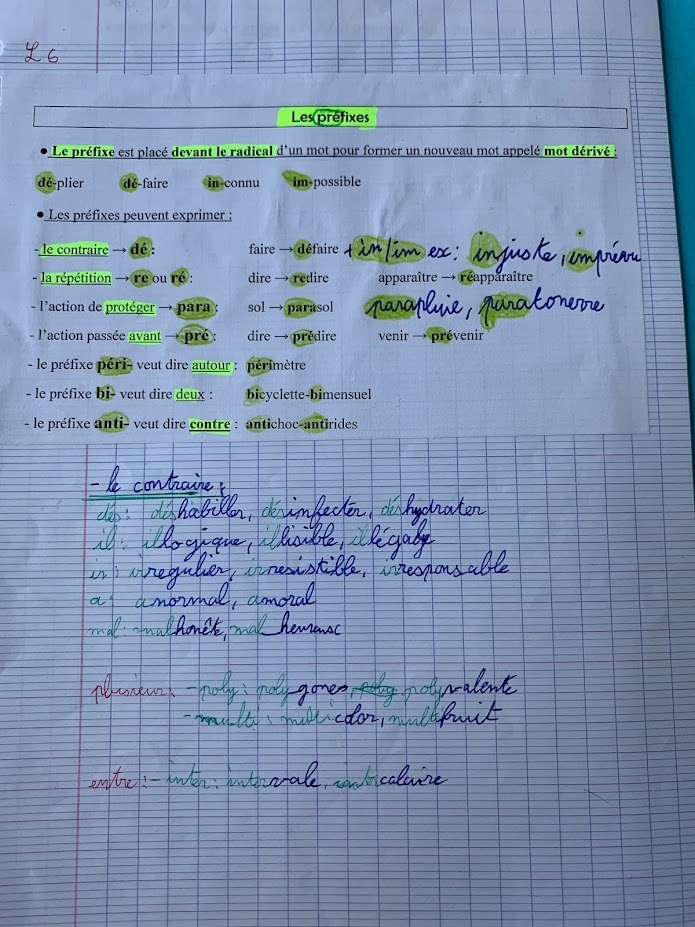 L 6
Les préfixes
• Le préfixe est placé devant le radical d'un mot pour former un nouveau mot appelé mot dérivé :
dé-plier dé-faire in-connu im-possible
• Les préfixes peuvent exprimer :
- le contraire → dé : faire → défaire + in/im ex : injuste, imprévu
- la répétition → re ou ré : dire → redire apparaître → réapparaître
- l'action de protéger → para : sol → parasol parapluie, paratonerre
- l'action passée avant → pré : dire → prédire venir → prévenir
- le préfixe péri- veut dire autour : périmètre
- le préfixe bi- veut dire deux : bicyclette-bimensuel
- le préfixe anti- veut dire contre : antichoc-antirides
- le contraire :
dés : déshabiller, désinfecter, déshydrater
il : illogique, illisible, illégale
ir : irregulier, irresistible, irresponsable
a : anormal, amoral
mal : malhonête, malheureuse
plusieur : - poly : polygones, poly polyvalente
- multi : multicolor, multifruit
entre : - inter : intervale, intercalaire